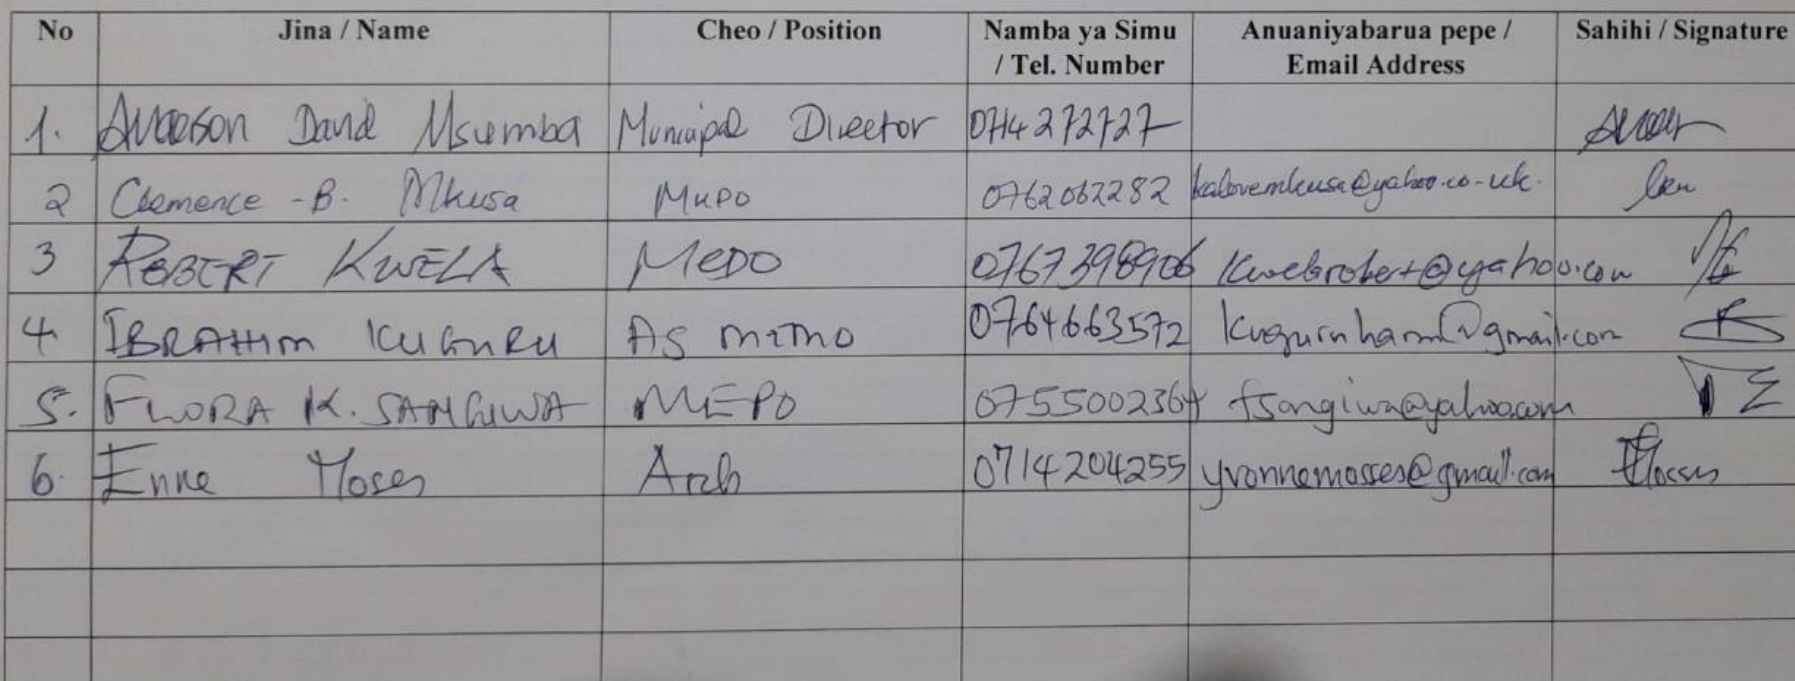 No Jina / Name Cheo / Position Namba ya Simu / Tel. Number Anuaniyabarua pepe / Email Address Sahihi / Signature
1. David Msumba Municipal Director 0714272727
2 Clemence -B. Mkusa MUPO 0762062282 kalovemkusa@yahoo.co-uk.
3 ROBERT KWELA MEDO 0767398906
4. IBRAHIM KUGURU AS 0764663572
5. FLORA K. SANGIWA MEPO 0755002364 fsangiwa@yahoo.com
6. Moses Arch 0714204255 yvonnemosses@gmail.com